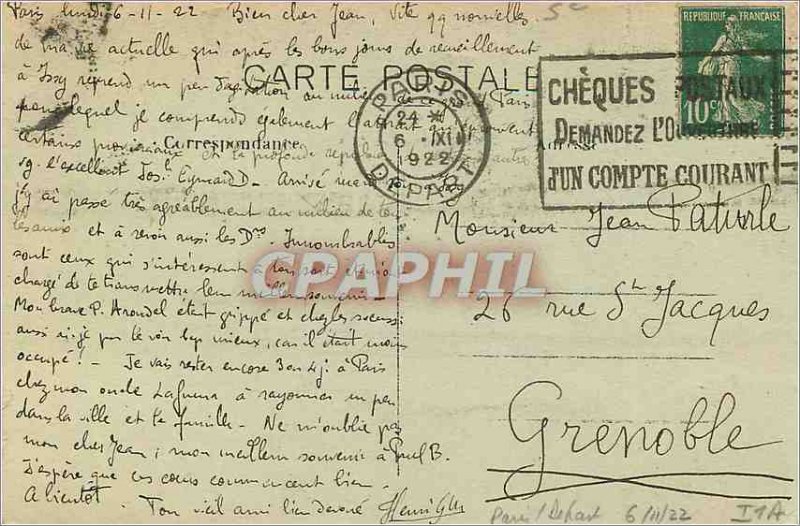 Paris lundi 6-11-22 Bien cher Jean, Vite qq nouvelles
de ma vie actuelle qui après les bons jours de recueillement
à Issy reprend un peu d'agitation au milieu de ce Paris
pour lequel je comprends également l'attrait
certains provinciaux et la profonde
l'excellent Eymard - Arrivé
j'y ai passé très agréablement au milieu de
et à revoir aussi les D. Innombrables
sont ceux qui s'intéressent à ton sort et m'ont
chargé de te transmettre leur meilleur souvenir -
Mon brave P. Aroudel était grippé et
aussi ai-je pu le voir bcp mieux, car il était moins
occupé! - Je vais rester encore 3 ou 4 j. à Paris
chez mon oncle à rayonner un peu
dans la ville et la famille - Ne m'oublie pas
mon cher Jean; mon meilleur souvenir à Paul B.
J'espère que ces cours commencent bien.
A bientôt. Ton vieil ami bien dévoué Henri
CARTE POSTALE
Correspondance
Adresse
PARIS
24
6 XI
1922
DEPART
CHÈQUES POSTAUX
DEMANDEZ L'OUVERTURE
D'UN COMPTE COURANT
RÉPUBLIQUE FRANÇAISE
10c
Monsieur Jean Paturle
26 rue St Jacques
Grenoble
CPAPHIL
Paris/Depart 6/11/22 I1A